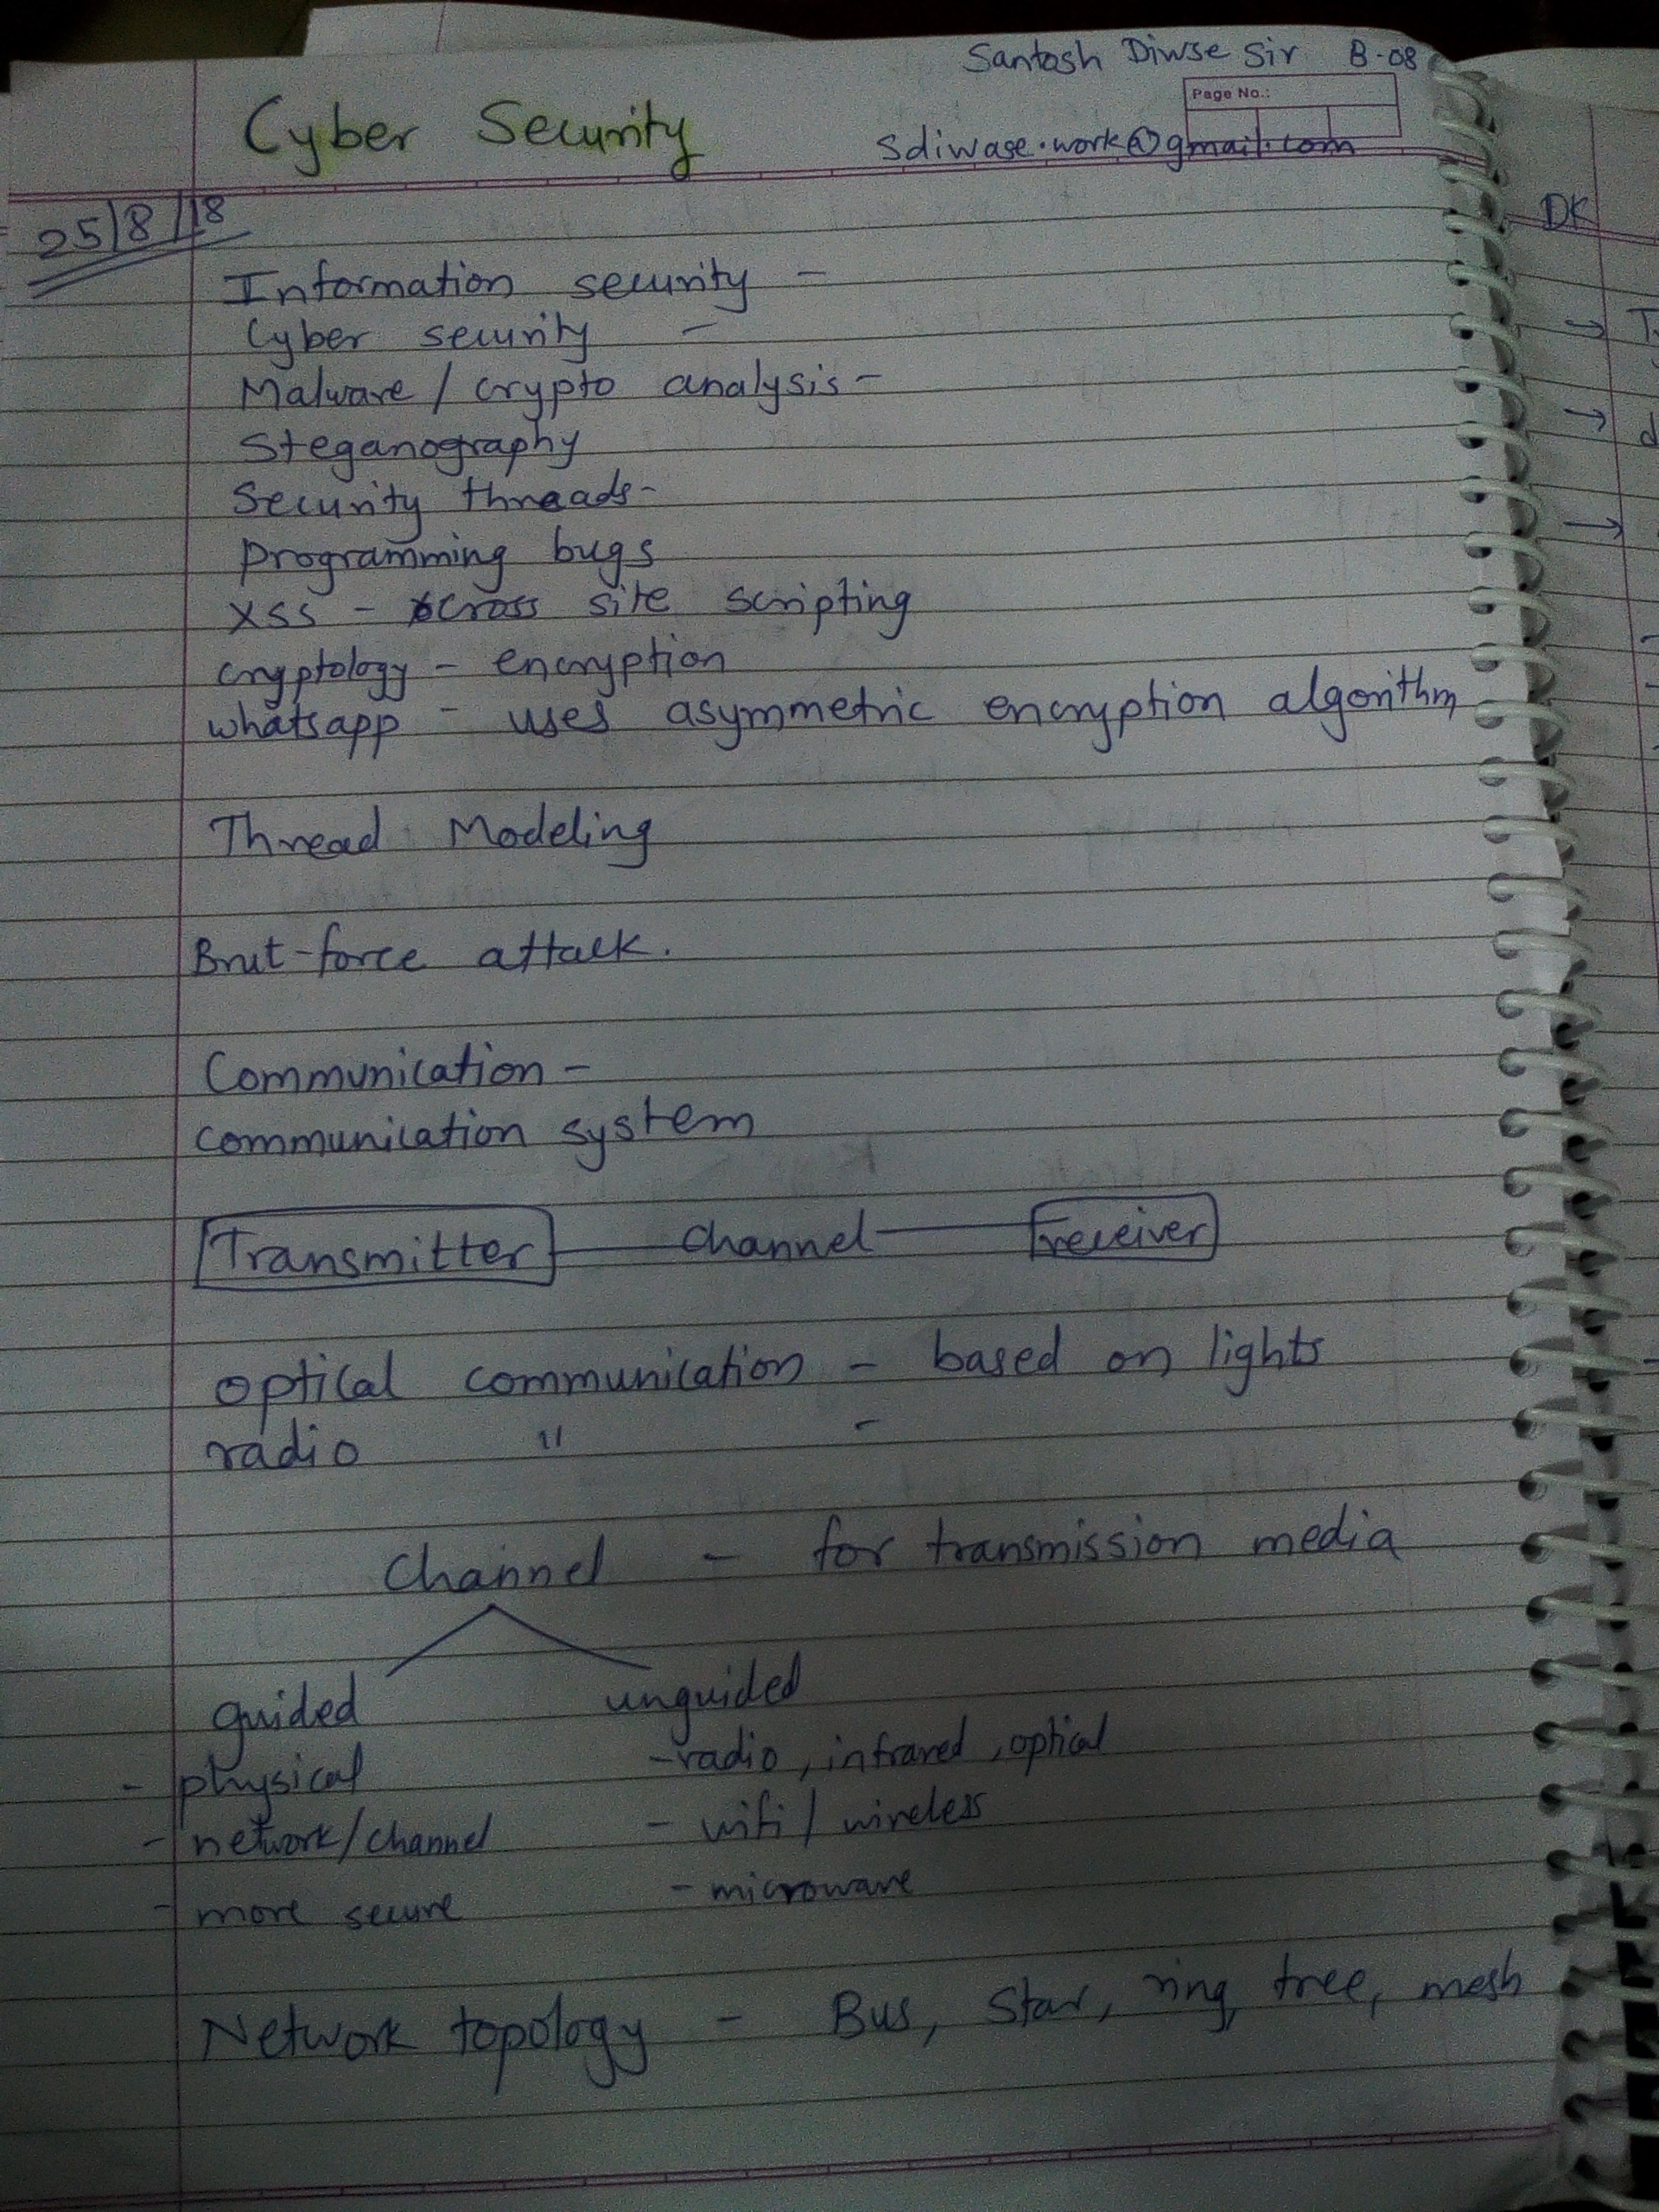 Santosh Diwse Sir B-08
Page No.:
Cyber Security
sdiwase.work@gmail.com
25/8/18
Information security -
Cyber security -
Malware / crypto analysis -
Steganography
Security threads -
programming bugs
XSS - cross site scripting
cryptology - encryption
whatsapp - uses asymmetric encryption algorithm
Thread Modeling
Brut-force attack.
Communication -
communication system
Transmitter channel receiver
optical communication - based on lights
radio " -
Channel - for transmission media
guided unguided
- physical - radio, infrared, optical
- network/channel - wifi / wireless
- more secure - microwave
Network topology - Bus, Star, ring, tree, mesh
DK
→
→
→